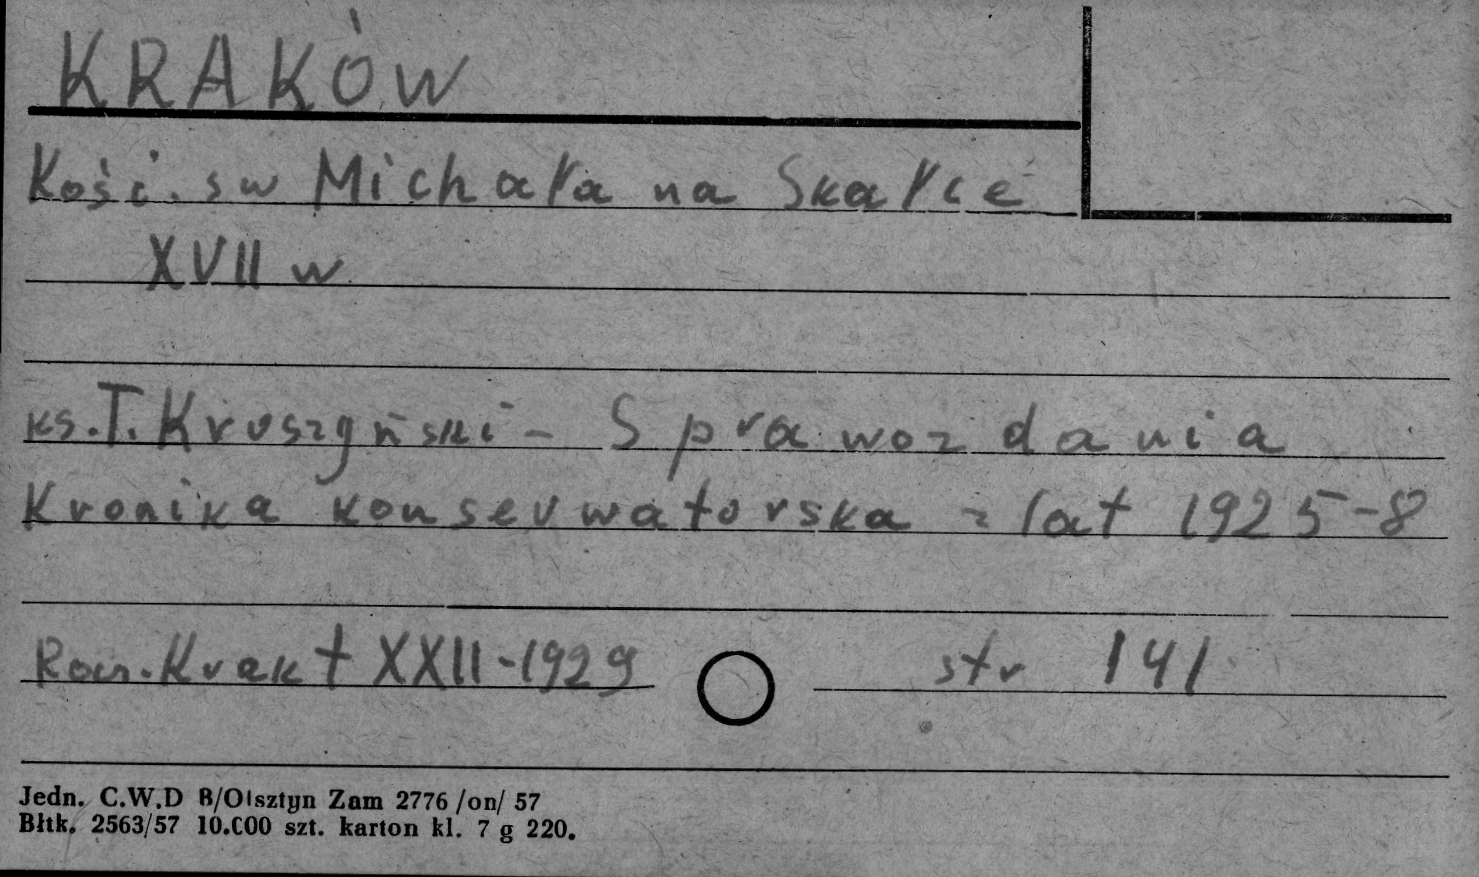 KRAKÓW
Kośc. sw Michała na Skałce
XVII w
ks. T. Kruszyński - Sprawozdania
Kronika konserwatorska z lat 1925-8
Rocz. Krak t XXII - 1929 str 141
Jedn. C.W.D B/Olsztyn Zam 2776 /on/ 57
Błtk. 2563/57 10.000 szt. karton kl. 7 g 220.